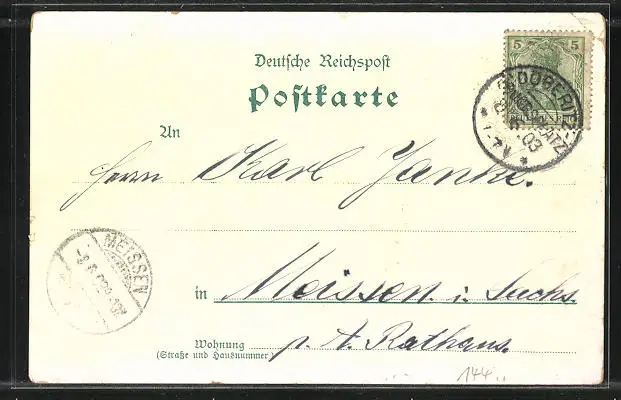 Deutsche Reichspost
Postkarte
5 5
DÖBERITZ
ÜBUNGSPLATZ
03
An
Herrn Karl Janke.
MEISSEN
in Meissen i. Sachs.
Wohnung p. A. Rathaus.
(Straße und Hausnummer)
144